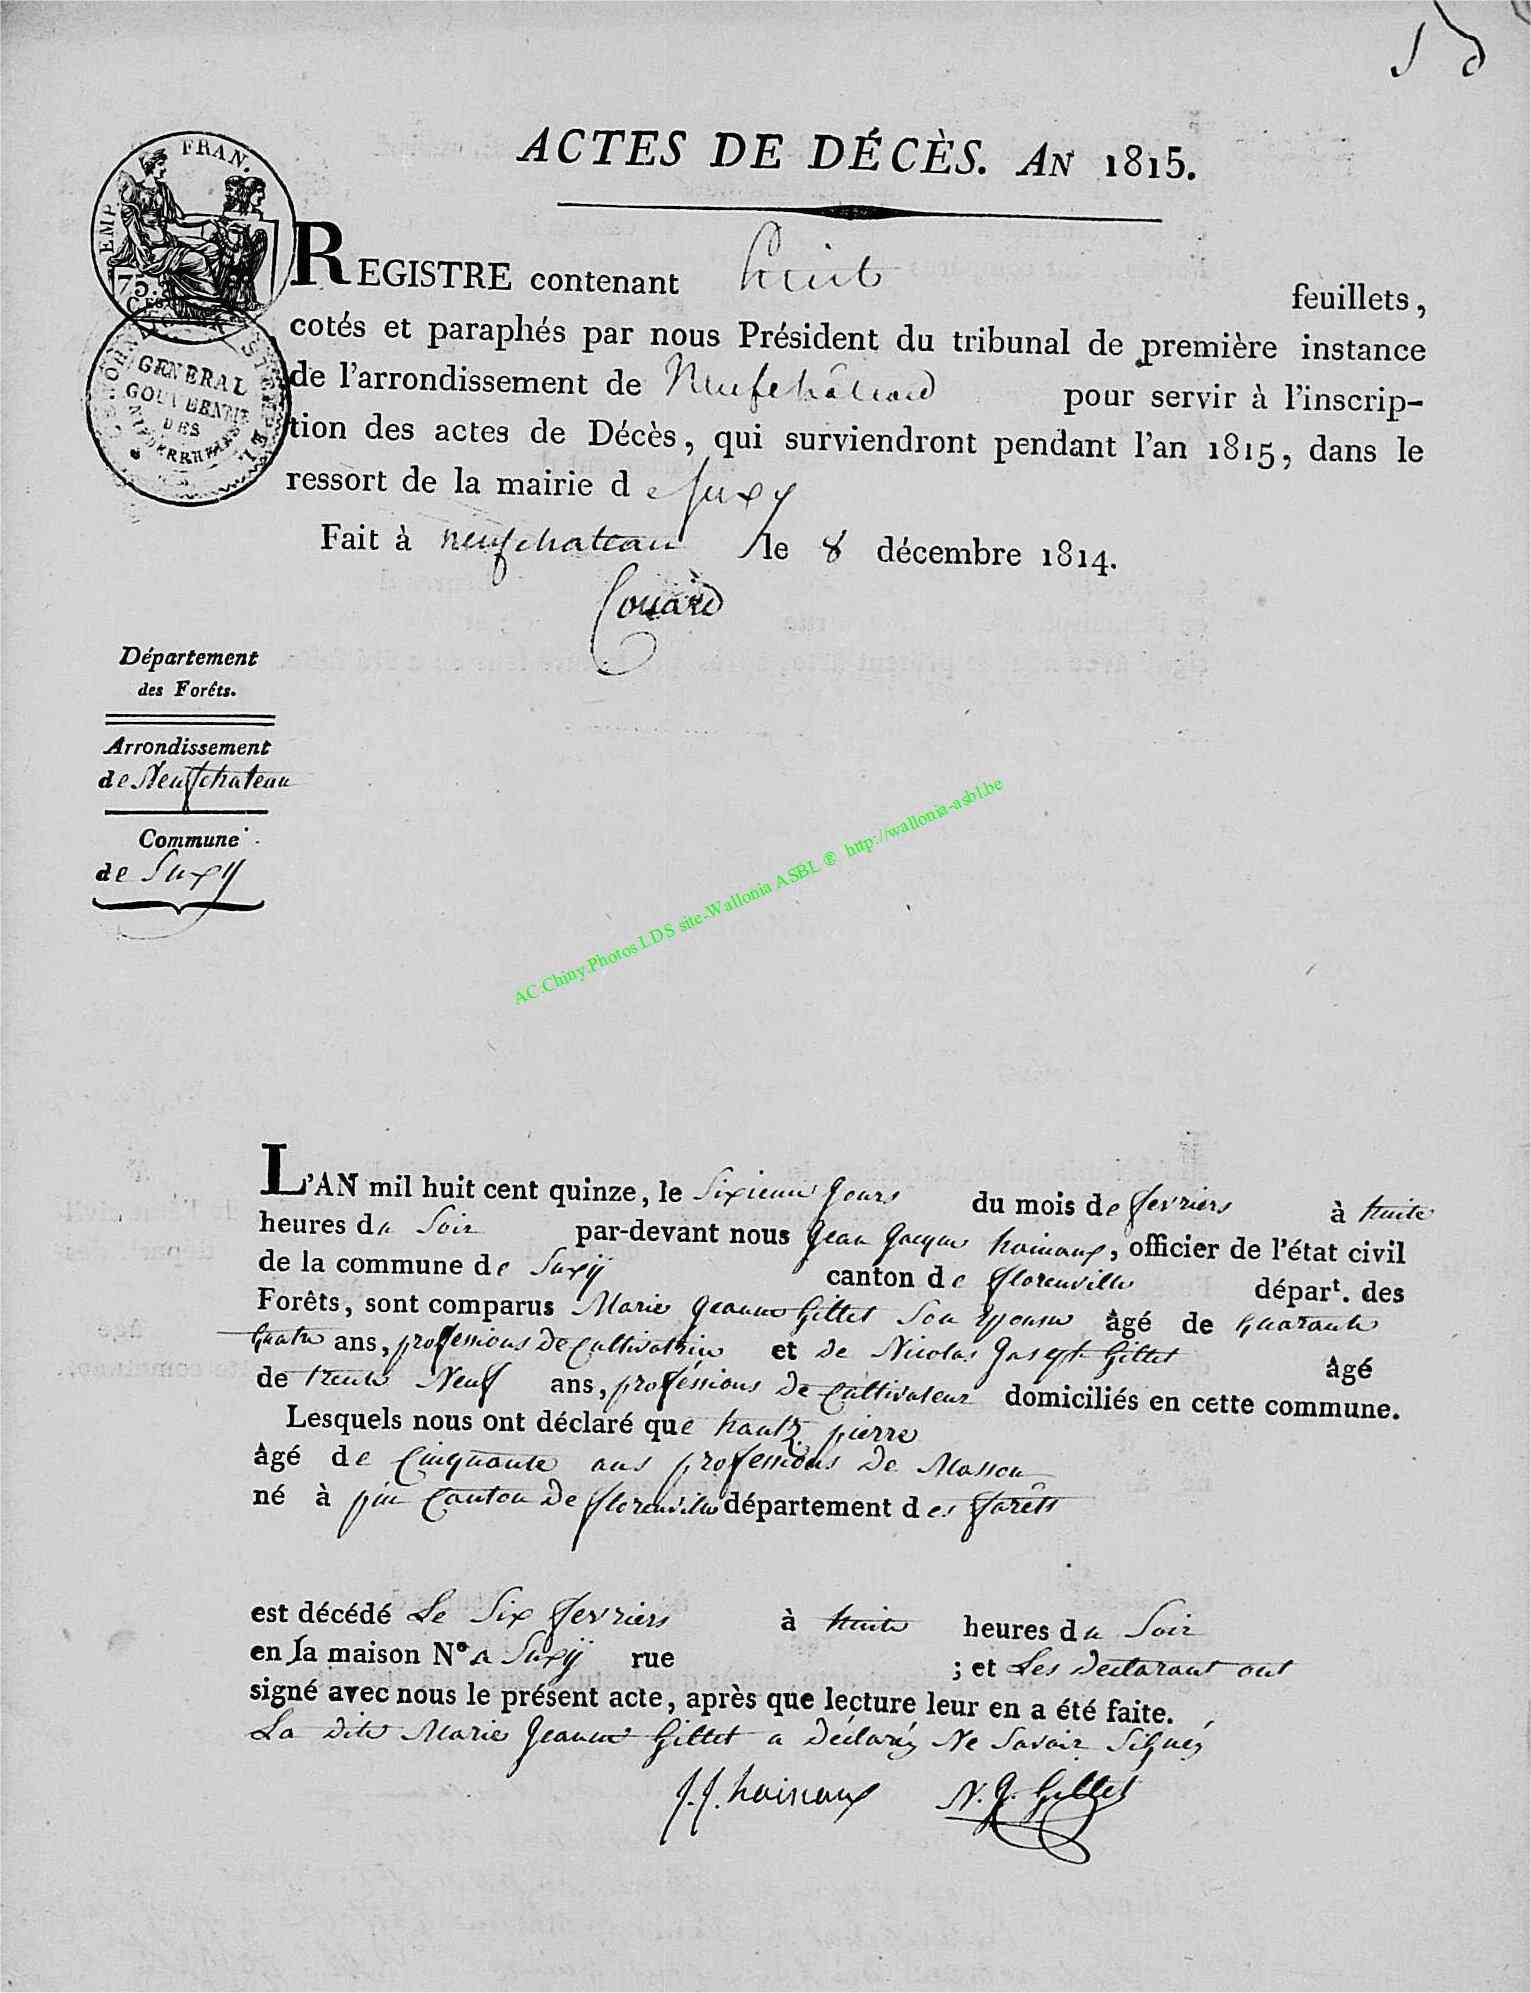 ACTES DE DÉCÈS. AN 1815.
EMP. FRAN.
75.
CES
GENERAL
GOUVERNEMT
DES
REGISTRE contenant huit feuillets,
cotés et paraphés par nous Président du tribunal de première instance
de l'arrondissement de Neufchâteau pour servir à l'inscrip-
tion des actes de Décès, qui surviendront pendant l'an 1815, dans le
ressort de la mairie de Suxy
Fait à neufchateau le 8 décembre 1814.
Département
des Forêts.
Arrondissement
de Neufchateau
Commune
de Suxÿ
AC.Chiny.Photos LDS site-Wallonia ASBL ® http://wallonia-asbl.be
L'AN mil huit cent quinze, le Sixieme Jours du mois de fevriers à huite
heures du Soir par-devant nous Jean Jacque hainaux, officier de l'état civil
de la commune de Suxÿ canton de florenville départ. des
Forêts, sont comparus Marie Jeanne Gillet Son Epouse âgé de quarante
quatre ans, professions De Cultivatrice et de Nicolas Joseph Gillet âgé
de trente Neuf ans, professions De Cultivateur domiciliés en cette commune.
Lesquels nous ont déclaré que hautz pierre
âgé de Cinquante ans professions De Masson
né à pin Canton De florenville département des forêts
est décédé Le Six fevriers à huite heures du Soir
en la maison N° a Suxÿ rue ; et Les Declarant ont
signé avec nous le présent acte, après que lecture leur en a été faite.
La dite Marie Jeanne Gillet a Déclaréz Ne Savoir Signéz
J.J. hainaux N. J. Gillet